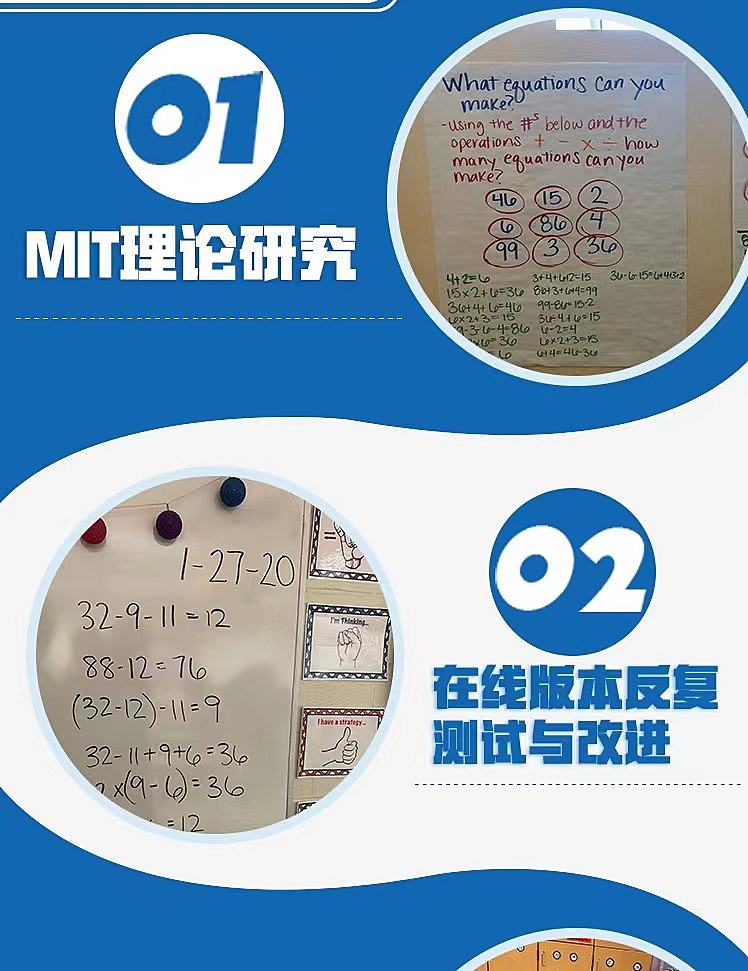 01
MIT理论研究
What equations can you
make?
-Using the #s below and the
operations + - x ÷ how
many equations can you
make?
46 15 2
6 86 4
99 3 36
4+2=6
15x2+6=36
36+4+6=46
6x2+3=15
9-3-6-4=86
x6=36
=6
3+4+6+2=15
86+3+6+4=99
99-86=15-2
36-4+6=15
6-2=4
6x2+3=15
6+4=46-36
36-6-15=6+4+3+2
02
在线版本反复
测试与改进
1-27-20
32-9-11=12
88-12=76
(32-12)-11=9
32-11+9+6=36
x(9-6)=36
=12
=
I'm Thinking...
I have a strategy...